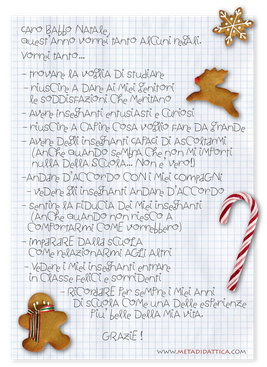 Caro Babbo Natale,
quest'anno vorrei tanto alcuni regali.
Vorrei tanto...
- trovare la voglia di studiare
- riuscire a dare ai miei genitori
le soddisfazioni che meritano
- avere insegnanti entusiasti e curiosi
- riuscire a capire cosa voglio fare da grande
- avere degli insegnanti capaci di ascoltarmi
(anche quando sembra che non mi importi
nulla della scuola... non è vero!)
- andare d'accordo con i miei compagni
- vedere gli insegnanti andare d'accordo
- sentire la fiducia dei miei insegnanti
(anche quando non riesco a
comportarmi come vorrebbero)
- imparare dalla scuola
come relazionarmi agli altri
- vedere i miei insegnanti entrare
in classe felici e sorridenti
- ricordare per sempre i miei anni
di scuola come una delle esperienze
più belle della mia vita.
Grazie!
www.metadidattica.com